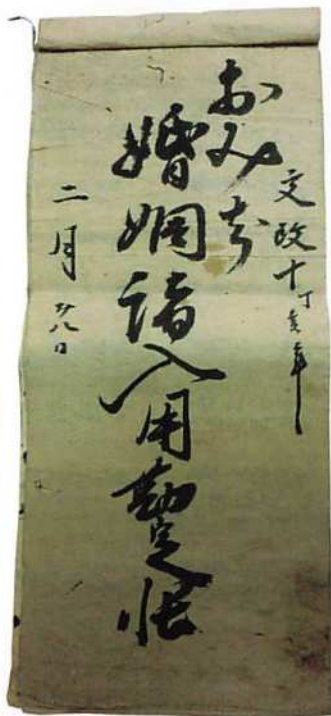 文政十丁亥年
おみち
婚姻諸入用勘定帳
二月廿八日